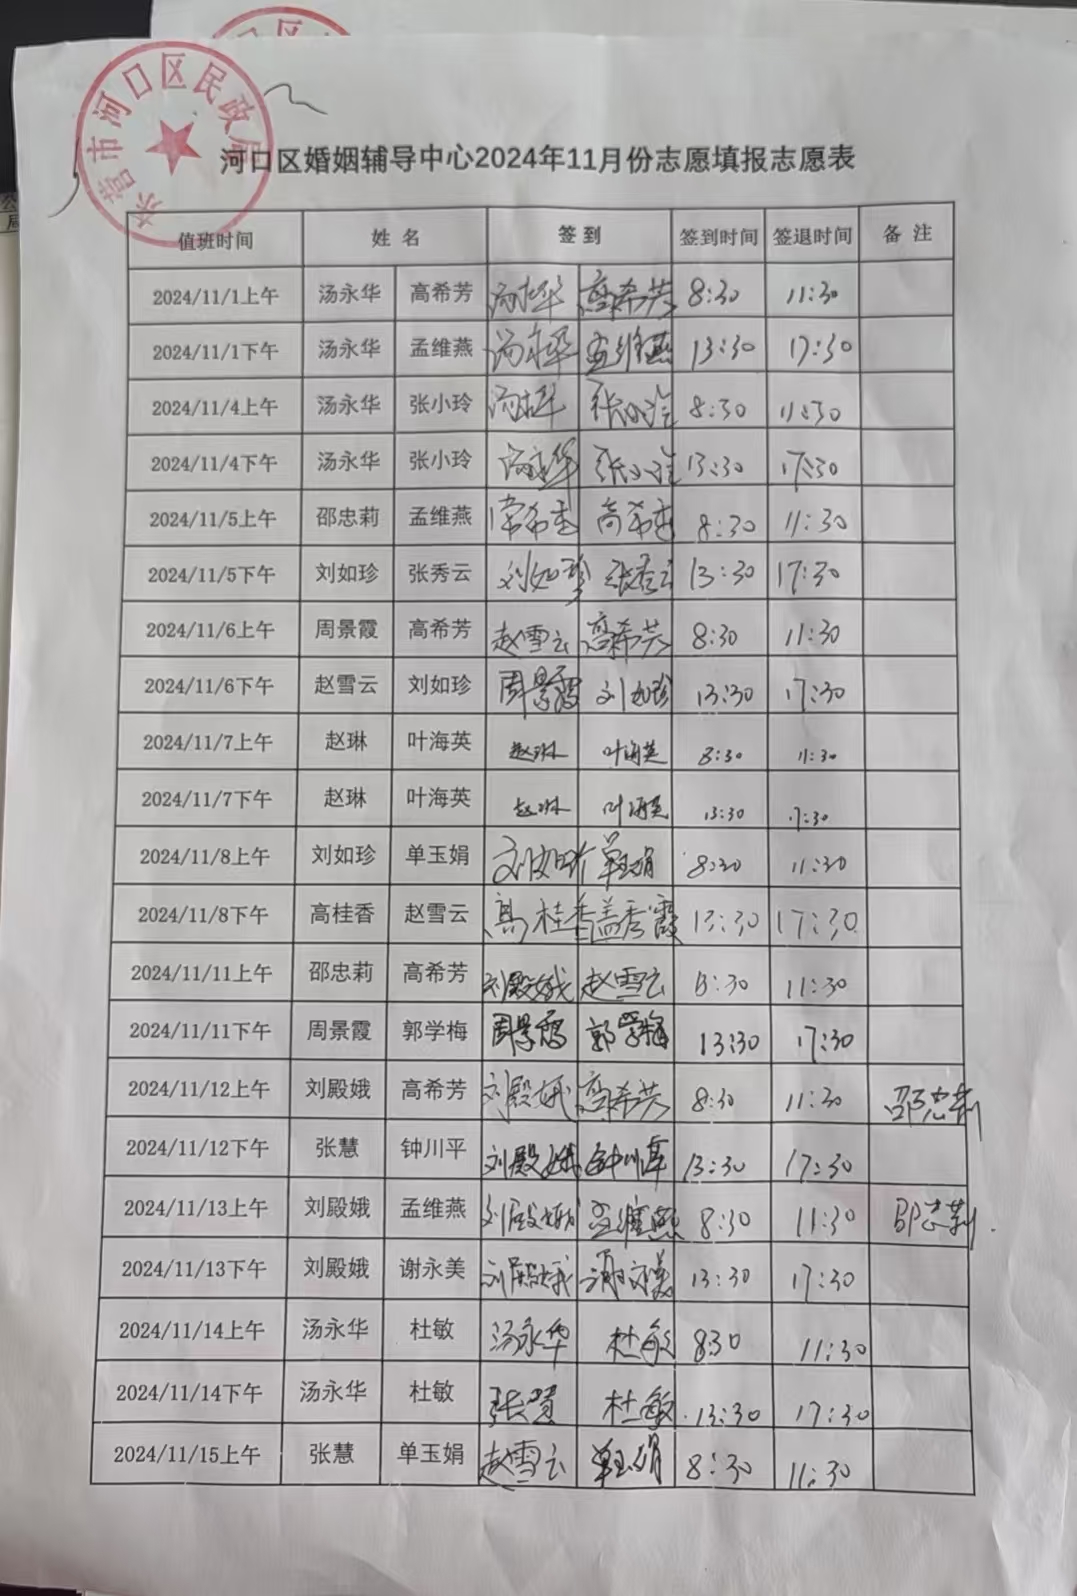 东营市河口区民政局
河口区婚姻辅导中心2024年11月份志愿填报志愿表
值班时间 姓 名 签 到 签到时间 签退时间 备 注
2024/11/1上午 汤永华 高希芳 汤永华 高希芳 8:30 11:30
2024/11/1下午 汤永华 孟维燕 汤永华 孟维燕 13:30 17:30
2024/11/4上午 汤永华 张小玲 汤永华 张小玲 8:30 11:30
2024/11/4下午 汤永华 张小玲 汤永华 张小玲 13:30 17:30
2024/11/5上午 邵忠莉 孟维燕 8:30 11:30
2024/11/5下午 刘如珍 张秀云 刘如珍 张秀云 13:30 17:30
2024/11/6上午 周景霞 高希芳 赵雪云 高希芳 8:30 11:30
2024/11/6下午 赵雪云 刘如珍 周景霞 刘如珍 13:30 17:30
2024/11/7上午 赵琳 叶海英 赵琳 叶海英 8:30 11:30
2024/11/7下午 赵琳 叶海英 赵琳 叶海英 13:30 17:30
2024/11/8上午 刘如珍 单玉娟 刘如珍 单玉娟 8:30 11:30
2024/11/8下午 高桂香 赵雪云 高桂香 盖秀霞 13:30 17:30
2024/11/11上午 邵忠莉 高希芳 刘殿娥 赵雪云 8:30 11:30
2024/11/11下午 周景霞 郭学梅 周景霞 郭学梅 13:30 17:30
2024/11/12上午 刘殿娥 高希芳 刘殿娥 高希芳 8:30 11:30 邵忠莉
2024/11/12下午 张慧 钟川平 刘殿娥 钟川平 13:30 17:30
2024/11/13上午 刘殿娥 孟维燕 刘殿娥 孟维燕 8:30 11:30 邵忠莉
2024/11/13下午 刘殿娥 谢永美 刘殿娥 谢永美 13:30 17:30
2024/11/14上午 汤永华 杜敏 汤永华 杜敏 8:30 11:30
2024/11/14下午 汤永华 杜敏 张慧 杜敏 13:30 17:30
2024/11/15上午 张慧 单玉娟 赵雪云 单玉娟 8:30 11:30